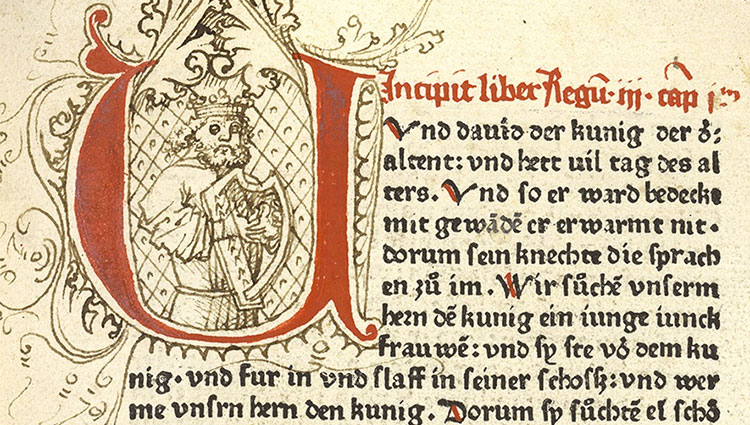 Incipit liber Regū·iij·cap̄ i^m
Vnd dauid der kunig der ð᷑
altent: vnd hett uil tag des al
ters. Vnd so er ward bedeckt
mit gewādē er erwarmt nit·
dorum sein knechte die sprach
en zů im. Wir sůchē vnserm
hern dē kunig ein iunge iunck
frauwē: vnd sy ste vö dem ku
nig· vnd fur in vnd slaff in seiner schosʒ: vnd wer
me vnsrn hern den kunig. Dorum sy sůchtē el schö